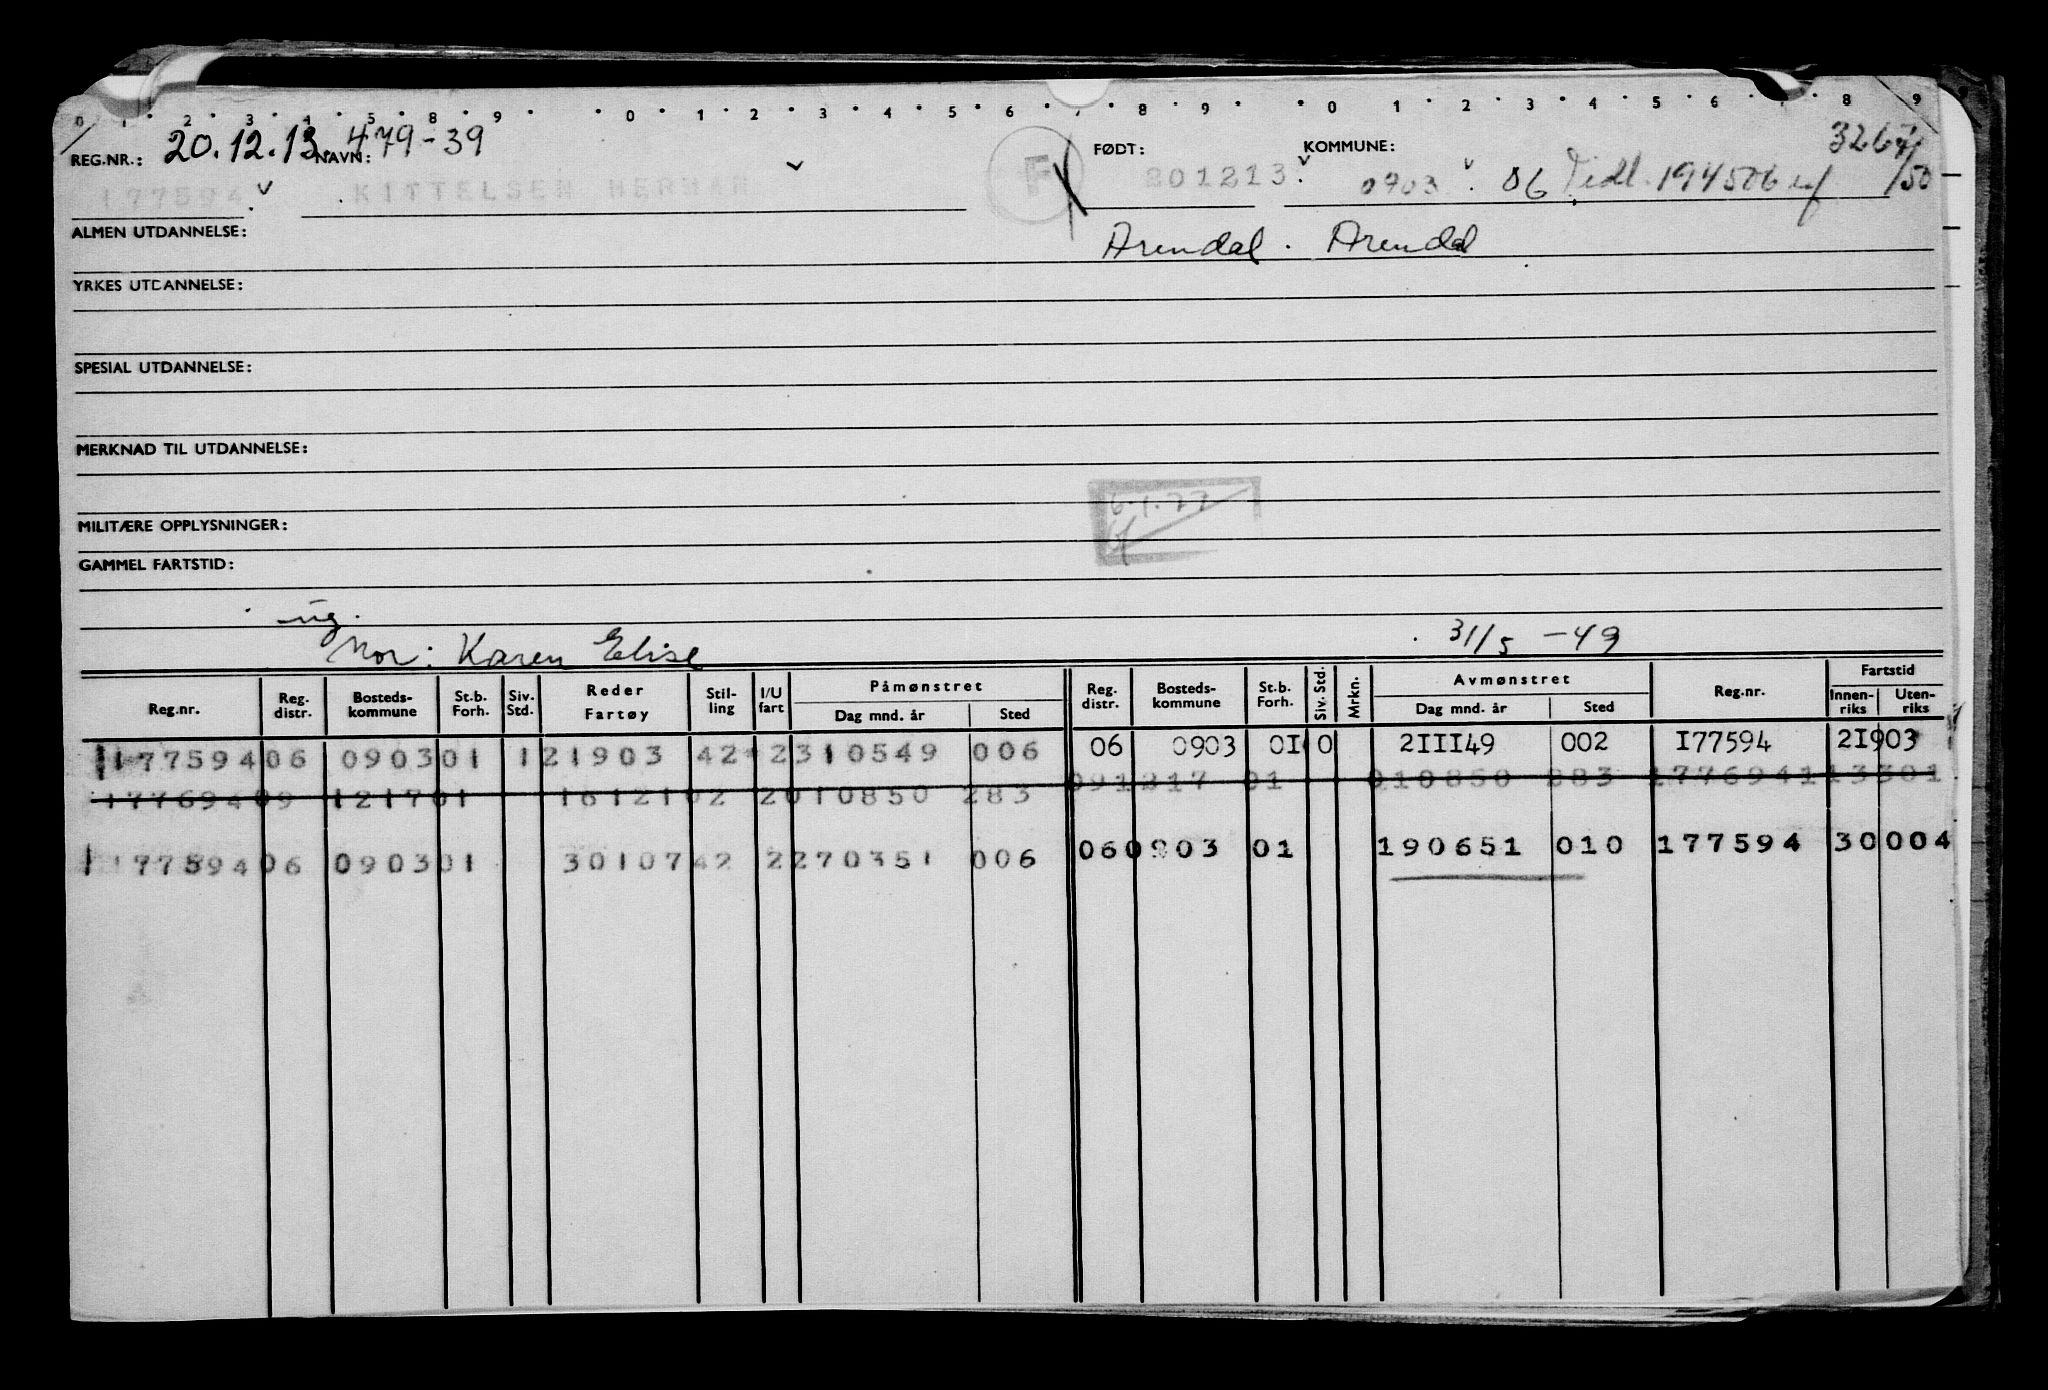 0 1 2 3 4 5 8 9 0 1 2 3 4 5 6 7 8 9 0 1 2 3 4 5 6 7 8 9
REG.NR.: 20.12.13. NAVN: 479-39 FØDT: KOMMUNE: 3267/50
177594 KITTELSEN HERMAN F 201213 0903 06 Tidl. 194506
ALMEN UTDANNELSE: Arendal. Arendal
YRKES UTDANNELSE:
SPESIAL UTDANNELSE:
MERKNAD TIL UTDANNELSE:
6.1.77
MILITÆRE OPPLYSNINGER:
GAMMEL FARTSTID:
ug.
Mor: Karen Elise 31/5 -49
Reg.nr. Reg. distr. Bosteds-kommune St.b. Forh. Siv. Std. Reder Fartøy Stil-ling I/U fart Påmønstret Dag mnd. år Sted Reg. distr. Bosteds-kommune St.b. Forh. Siv. Std. Mrkn. Avmønstret Dag mnd. år Sted Reg.nr. Fartstid Innen-riks Uten-riks
177594 06 0903 01 1 21903 42 2 310549 006 06 0903 0I 0 2III49 002 I77594 2I903
177694 09 1217 01 16121 02 2 010850 283 09 1217 01 010850 283 177694 1 13301
177594 06 0903 01 30107 42 2 270351 006 06 0903 01 190651 010 177594 30004